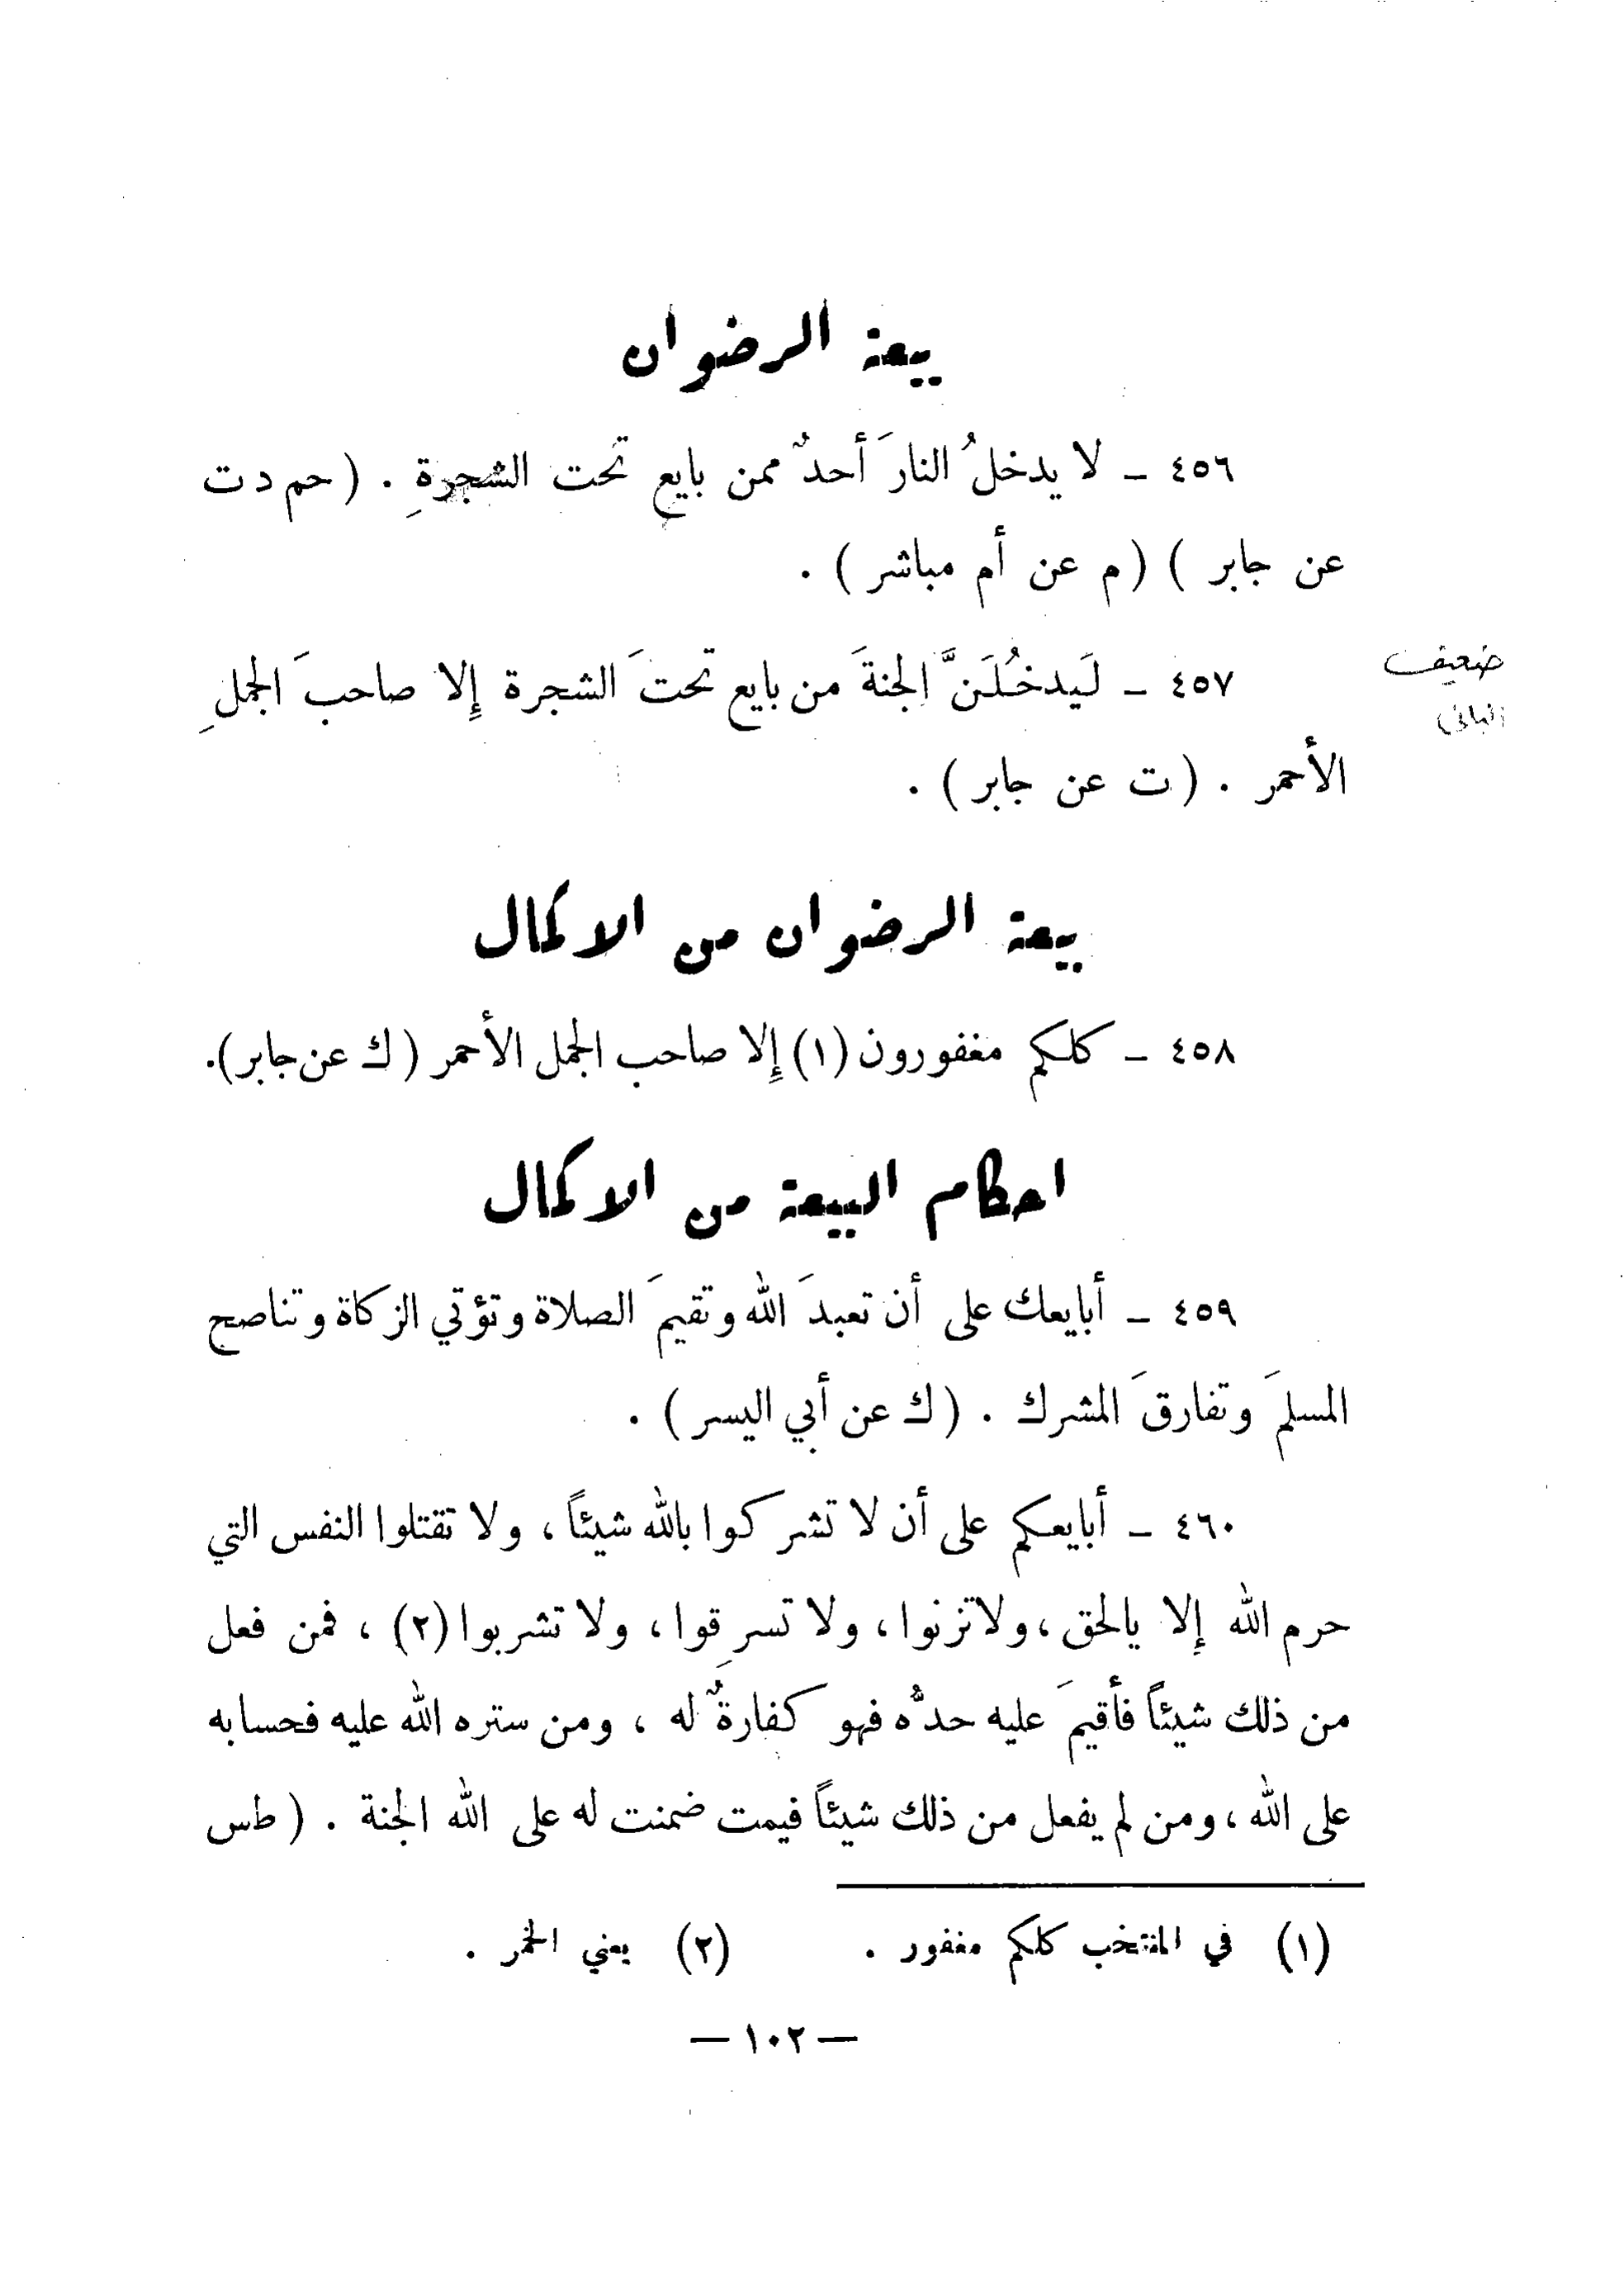 بيعة الرضوان
٤٥٦ - لا يدخلُ النارَ أحدٌ ممن بايع تحت الشجرةِ . ( حم د ت
عن جابر ) ( م عن أم مباشر ) .
ضعيف
٤٥٧ - لَيدخُلَنَّ الجنةَ من بايع تحتَ الشجرة إِلا صاحبَ الجملِ
الأحمر . ( ت عن جابر ) .
بيعة الرضوان من الاكمال
٤٥٨ - كلكم مغفورون (١) إِلا صاحب الجمل الأحمر ( ك عن جابر ).
احكام البيعة من الاكمال
٤٥٩ - أبايعك على أن تعبدَ الله وتقيمَ الصلاة وتؤتي الزكاة وتناصح
المسلمَ وتفارقَ المشرك . ( ك عن أبي اليسر ) .
٤٦٠ - أبايعكم على أن لا تشركوا بالله شيئاً ، ولا تقتلوا النفس التي
حرم الله إِلا يالحق ، ولا تزنوا ، ولا تسرِقوا ، ولا تشربوا (٢) ، فمن فعل
من ذلك شيئاً فأقيمَ عليه حدُّه فهو كفارةٌ له ، ومن ستره الله عليه فحسابه
على الله ، ومن لم يفعل من ذلك شيئاً فيمت ضمنت له على الله الجنة . ( طس
(١) في المنتخب كلكم مغفور . (٢) يعني الخمر .
— ١٠٢ —